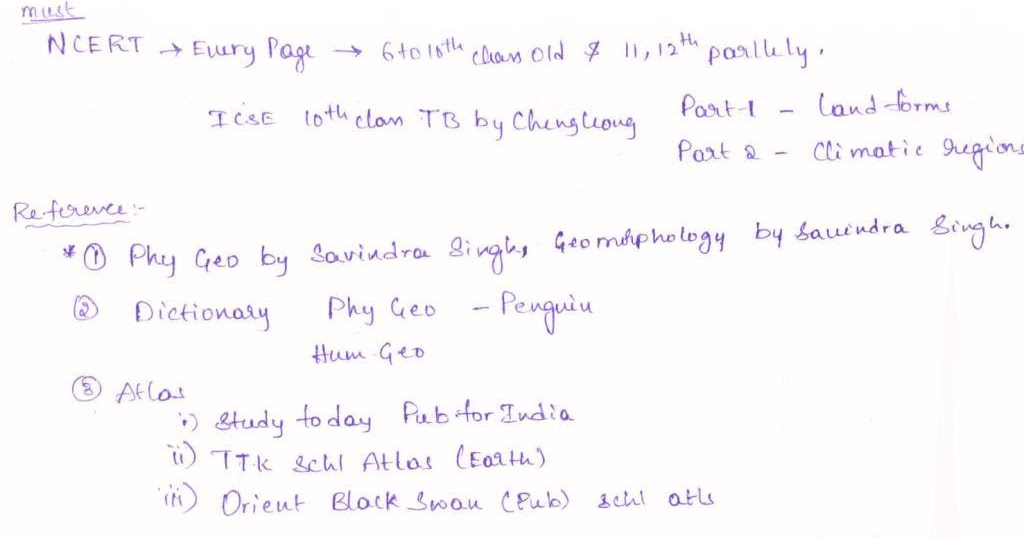 must
NCERT → Every Page → 6 to 10th class old & 11, 12th parllely.
ICSE 10th class TB by Chengleong Part-1 - Land-forms
Part 2 - Climatic regions
Reference:-
* ① Phy Geo by Savindra Singh, Geomorphology by Savindra Singh.
② Dictionary Phy Geo - Penguin
Hum. Geo
③ Atlas
i) Study today Pub for India
ii) TTK schl Atlas (Earth)
iii) Orient Black Swan (Pub) schl atls